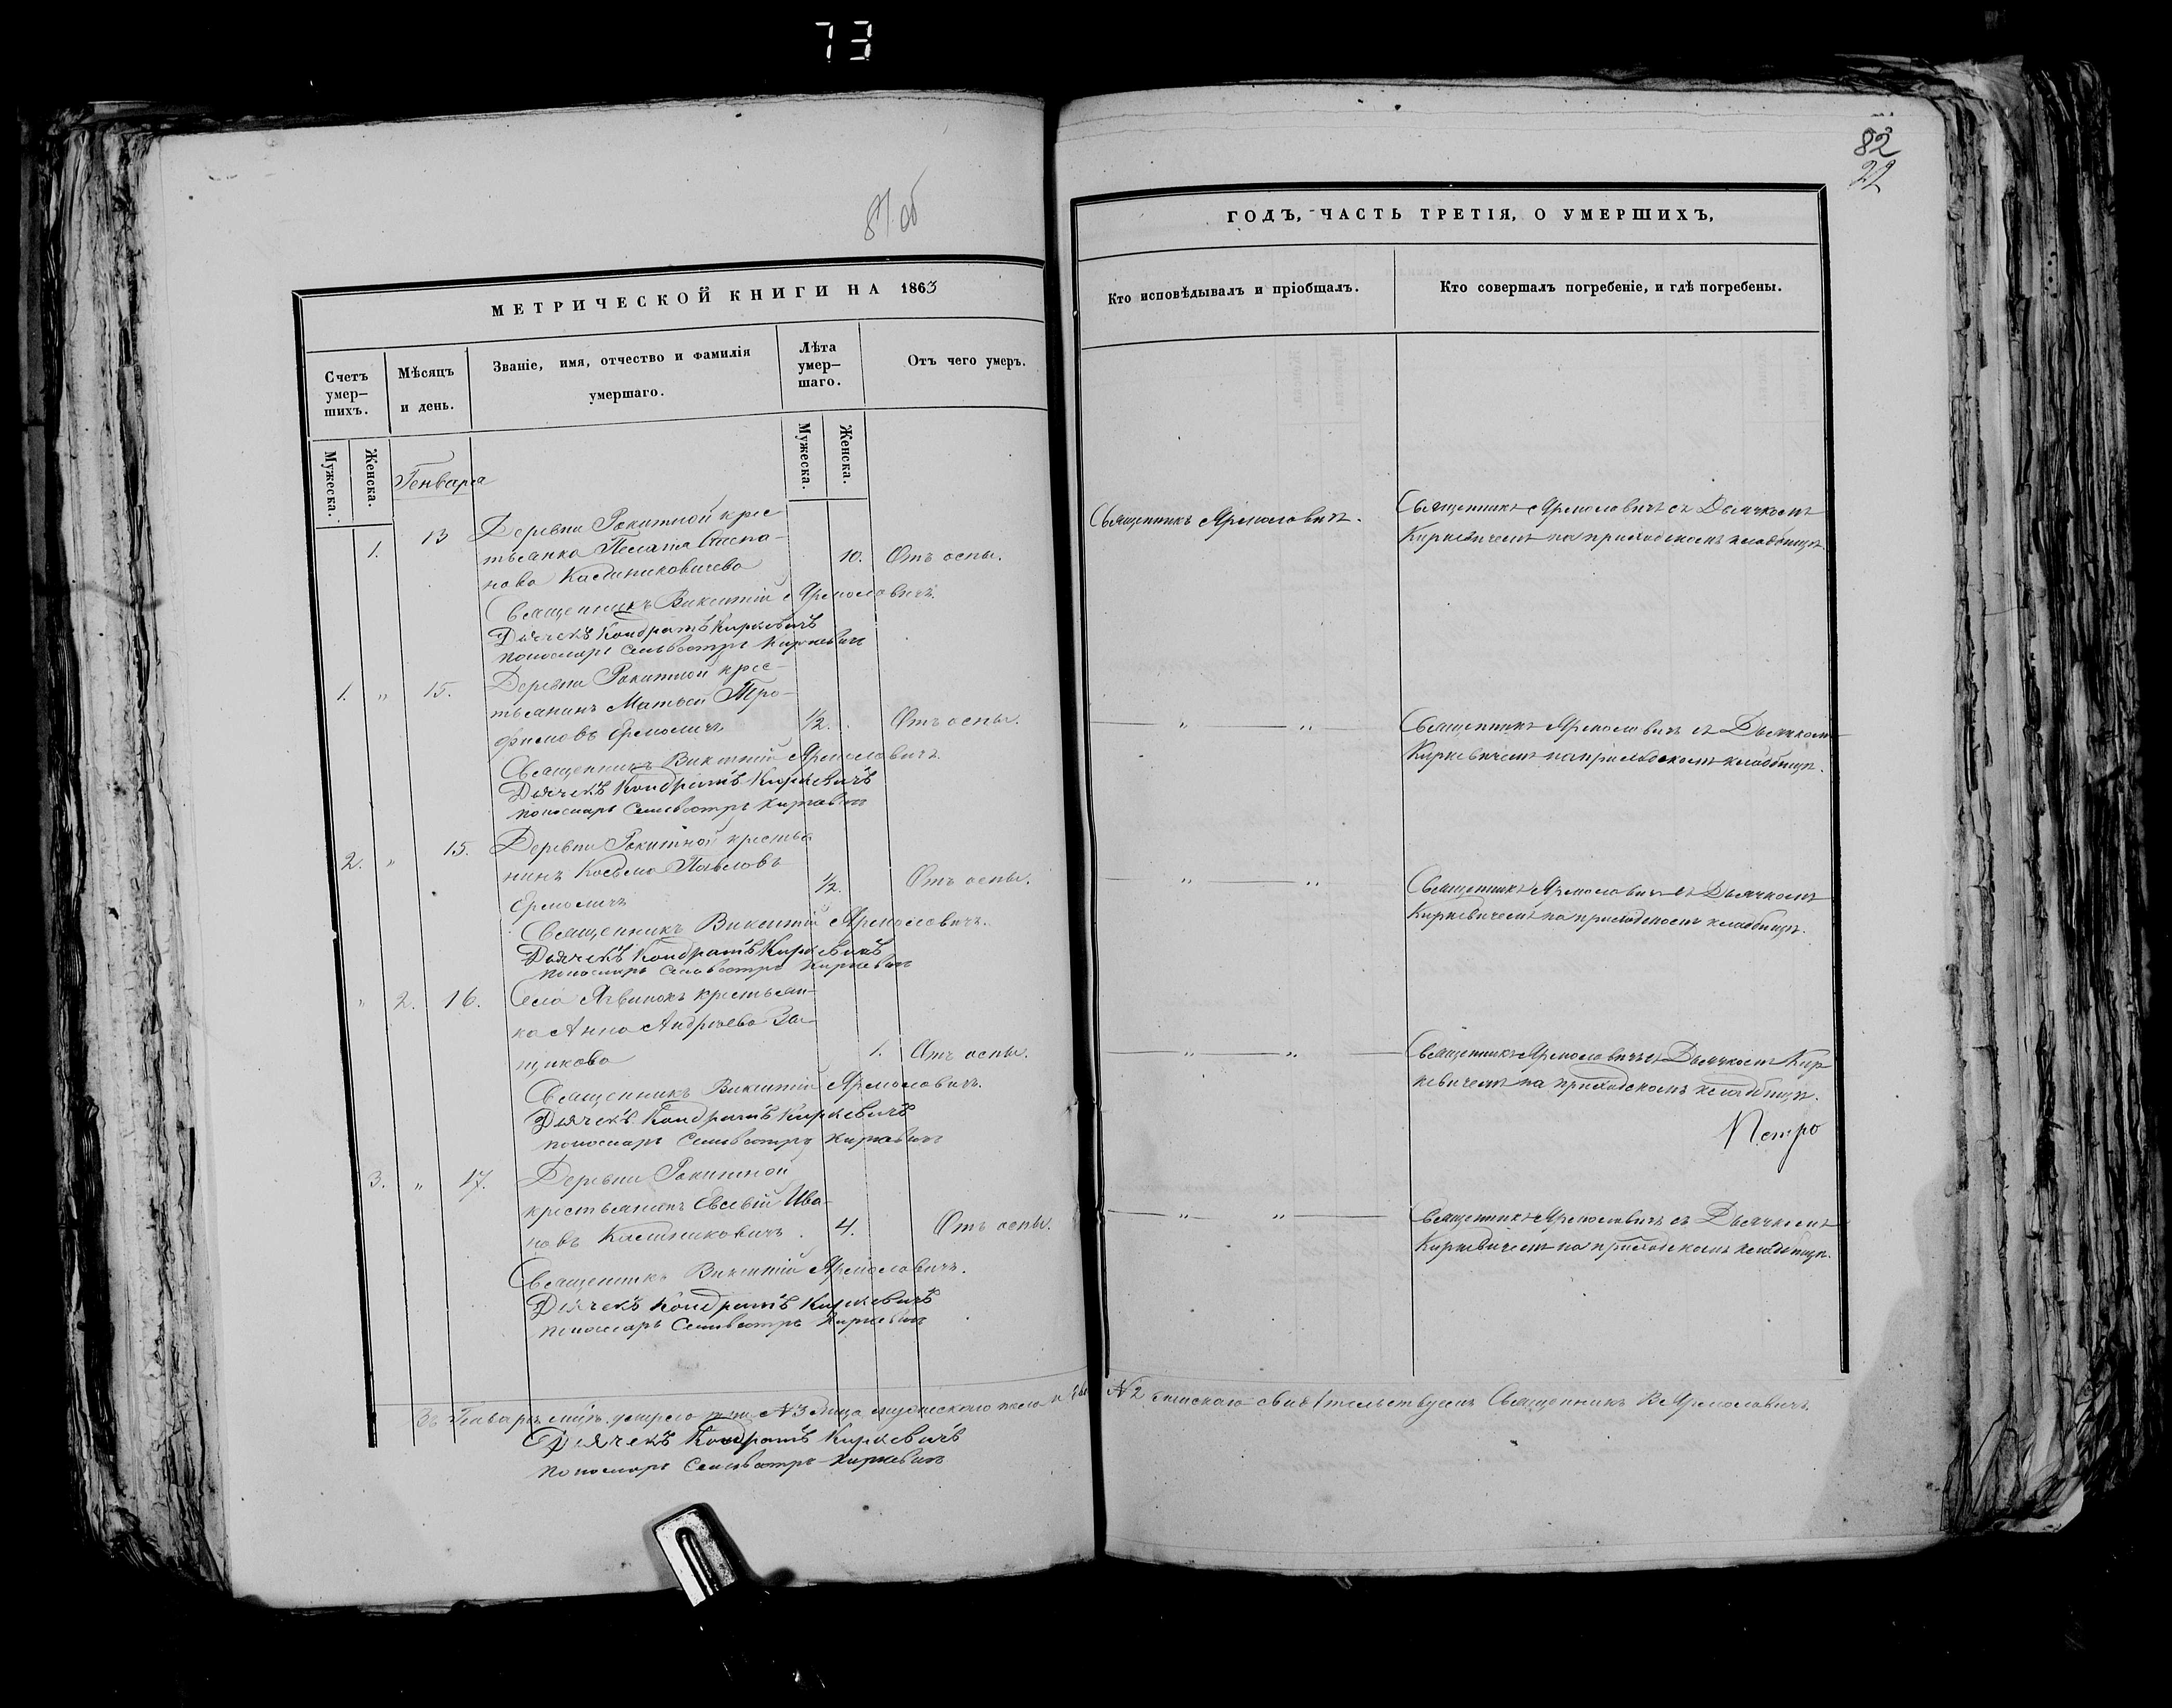 73
81 об
МЕТРИЧЕСКОЙ КНИГИ НА 1863
Счетъ умер-
шихъ.
Мѣсяцъ
и день.
Званіе, имя, отчество и фамилія
умершаго.
Лѣта
умер-
шаго.
Отъ чего умеръ.
Мужеска.
Женска.
Мужеска.
Женска.
Генваря
1. 13 Деревни Рокитной крес
тьянка Пелагія
нова Калениковичева 10. Отъ оспы.
Священникъ Викентій Ярмоловичъ.
Дьячекъ Кондратъ Киркевичъ
пономарь Сельвестръ Киркевичъ
1. " 15. Деревни Рокитной крес-
тьянинъ Матвей Тро-
фимовъ Ермоличъ ½. Отъ оспы.
Священникъ Викентій Ярмоловичъ.
Дьячекъ Кондратъ Киркевичъ
пономарь Сельвестръ Киркевичъ
2. " 15. Деревни Рокитной крестья
нинъ Косьма Павловъ
Ермоличъ ½. Отъ оспы.
Священникъ Викентій Ярмоловичъ.
Дьячекъ Кондратъ Киркевичъ
пономарь Сельвестръ Киркевичъ
" 2. 16. Села Язвинокъ крестьян-
ка Анна Андреева За-
1. Отъ оспы.
Священникъ Викентій Ярмоловичъ.
Дьячекъ Кондратъ Киркевичъ
пономарь Сельвестръ Киркевичъ
3. " 17. Деревни Рокитной
крестьянинъ Евсевій Ива-
новъ Калениковичъ. 4. Отъ оспы.
Священникъ Викентій Ярмоловичъ.
Дьячекъ Кондратъ Киркевичъ
пономарь Сельвестръ Киркевичъ
Въ Генварѣ умерло № 3 лица мужескаго пола и
Дьячекъ Кондратъ Киркевичъ
пономарь Сельвестръ Киркевичъ
82
22
ГОДЪ, ЧАСТЬ ТРЕТІЯ, О УМЕРШИХЪ,
Кто исповѣдывалъ и пріобщалъ.
Кто совершалъ погребеніе, и гдѣ погребены.
Священникъ Ярмоловичъ.
Священникъ Ярмоловичъ съ Дьячкомъ
Киркевичемъ на приходскомъ кладбищѣ.
" "
Священникъ Ярмоловичъ съ Дьячкомъ
Киркевичемъ на приходскомъ кладбищѣ.
" "
Священникъ Ярмоловичъ съ Дьячкомъ
Киркевичемъ на приходскомъ кладбищѣ.
" "
Священникъ Ярмоловичъ съ Дьячкомъ Кир
кевичемъ на приходскомъ кладбищѣ.
Петро
" "
Священникъ Ярмоловичъ съ Дьячкомъ
Киркевичемъ на приходскомъ кладбищѣ.
№ 2 женскаго свидѣтельствуемъ Священникъ В Ярмоловичъ.